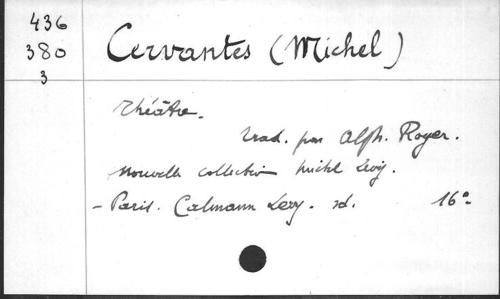 436
380
3
Cervantes (Michel)
Théâtre.
trad. par Alph. Royer.
Nouvelle collection Michel Lévy.
- Paris. Calmann Levy. sd. 16°